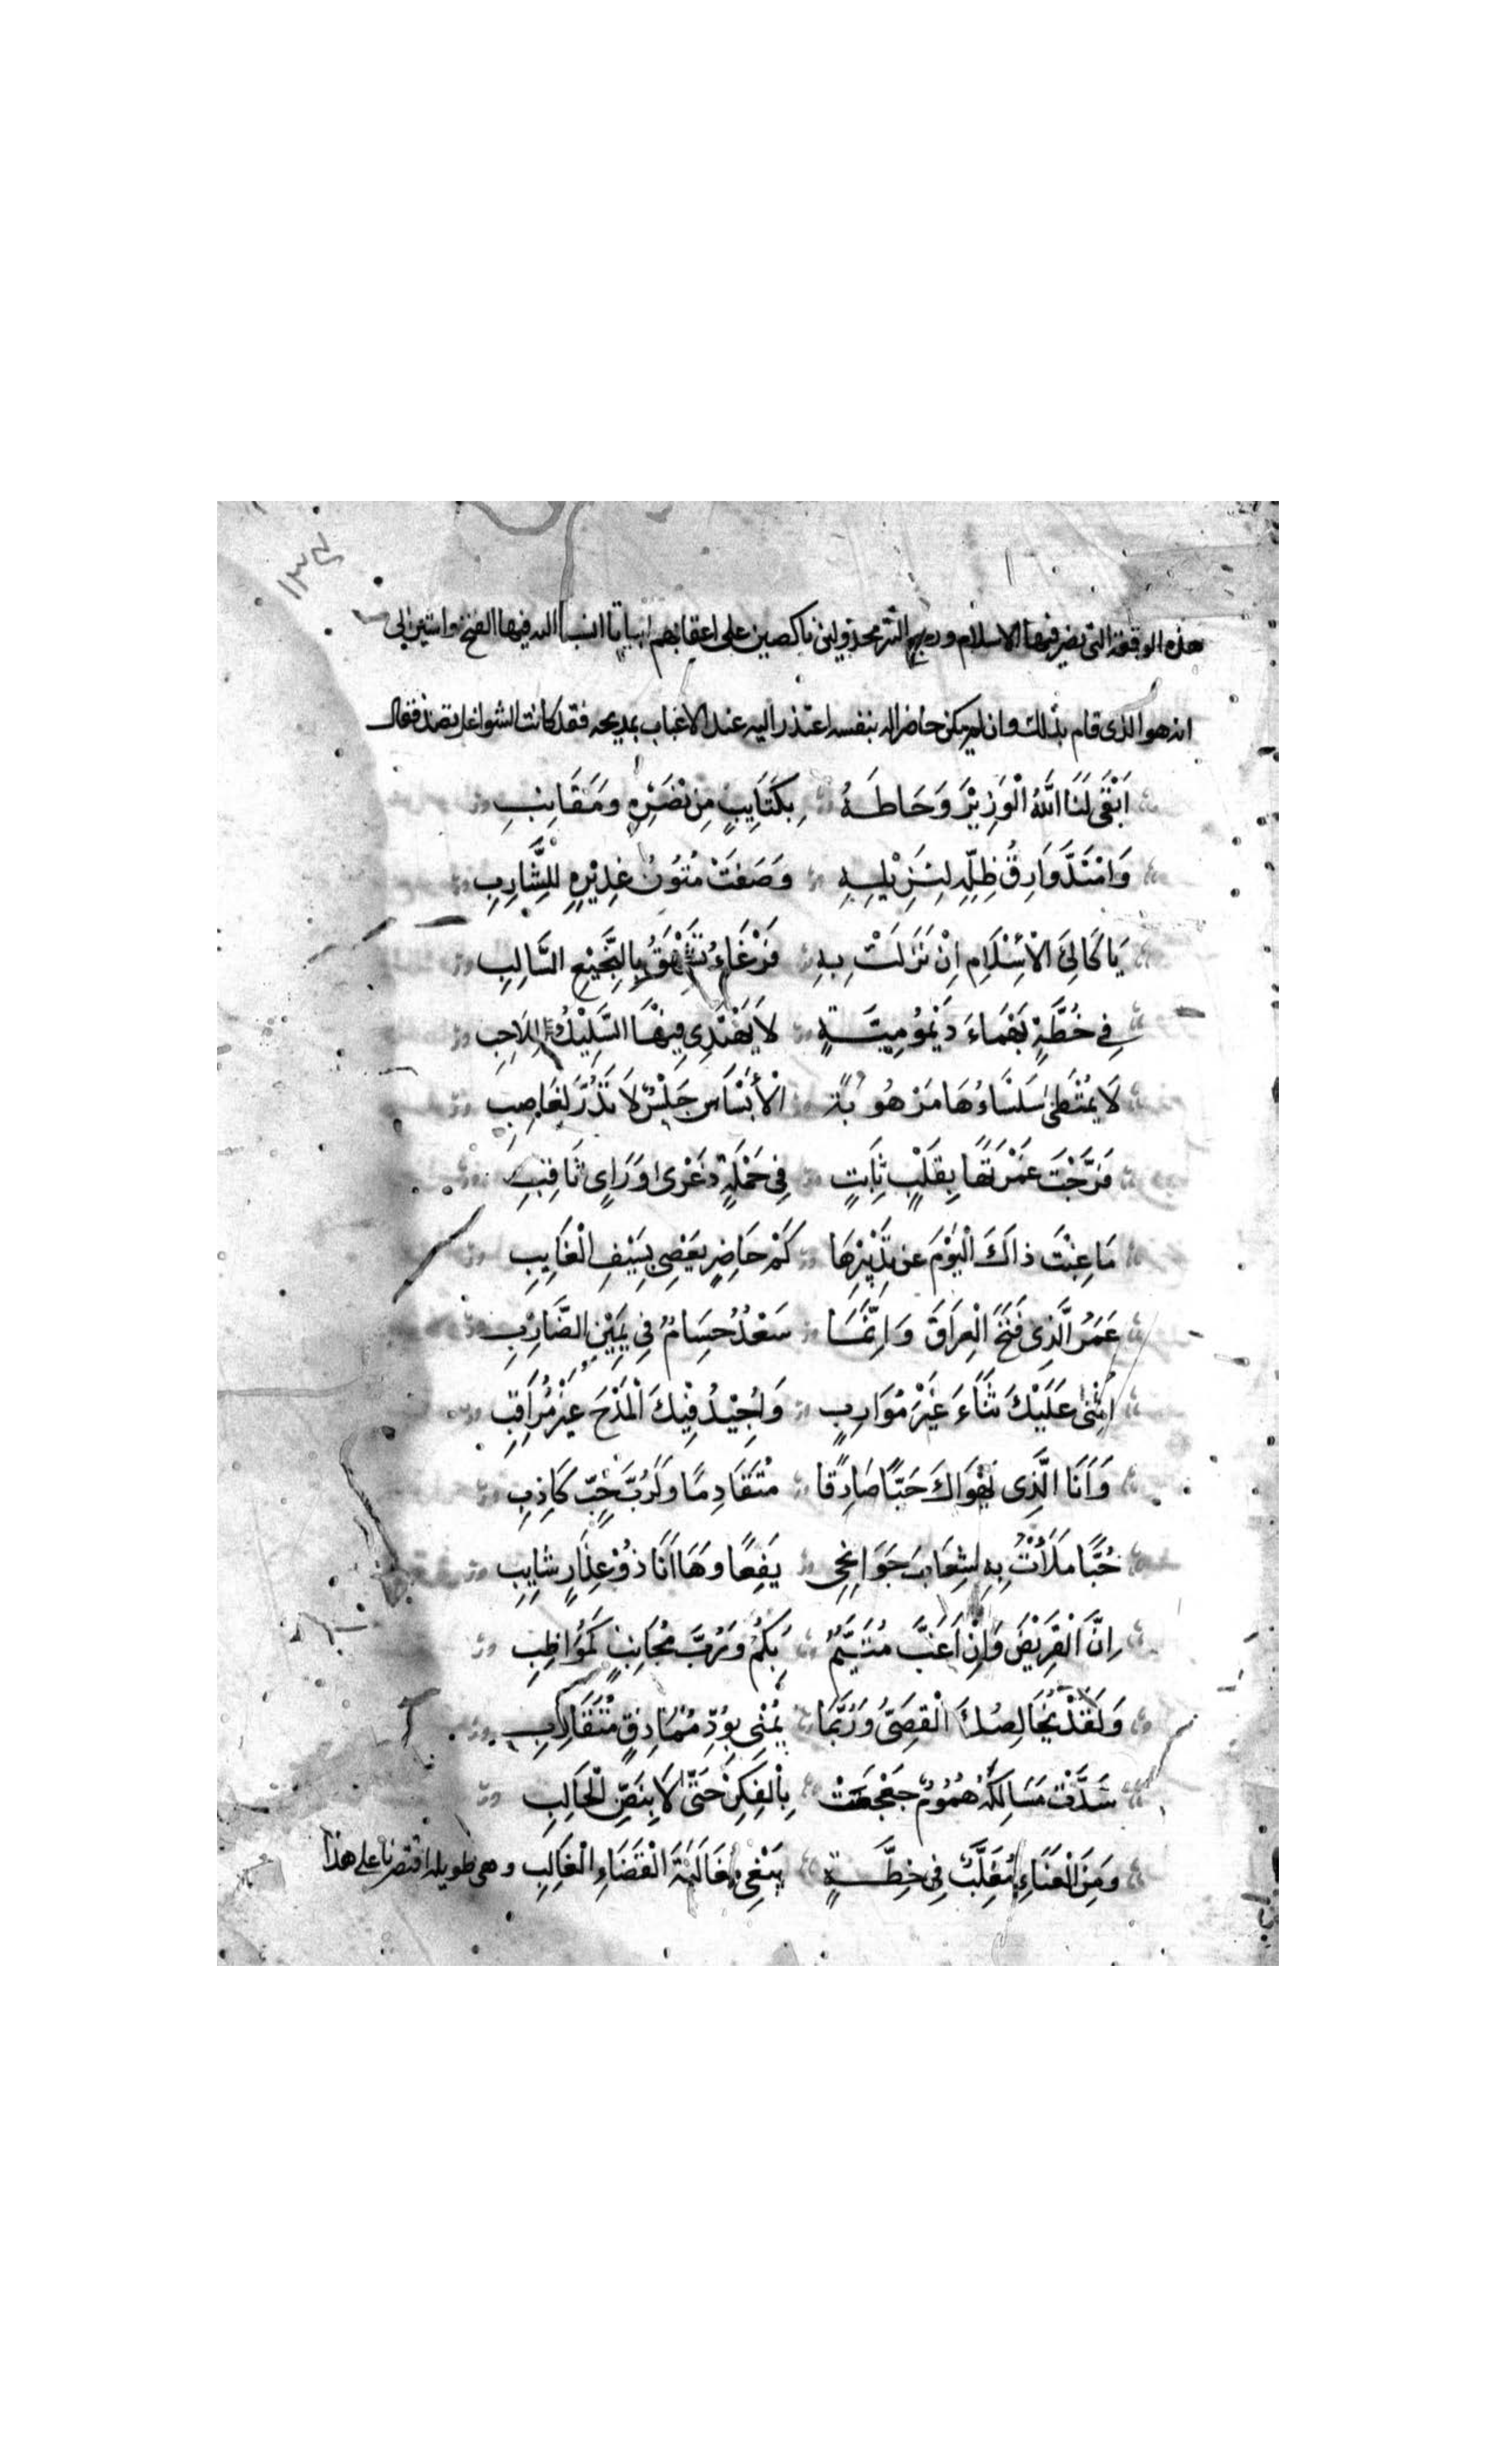 ١٣٤
هذه الوقعة التي نصر فيها الاسلام ورجع التتر مخذولين ناكصين على اعقابهم ابياتا انسا اليه فيها الفتح واستبين لي
انه هو الذي قام بذلك وان لم يكن حاضرا له بنفسه اعتذر اليه عند الاغباب بمديحه فقد كانت الشواغل تصد فقال
اَبْقَى لَنَا اللّٰهُ الْوَزِيْرَ وَحَاطَهُ بِكَتَايِبٍ مِنْ نَصْرِهِ وَمَقَانِبِ
وَامْتَدَّ وَارِفُ ظِلِّهِ لِنَزِيْلِهِ وَصَفَتْ مُتُوْنُ غَدِيْرِهِ لِلشَّارِبِ
يَا كَالِئَ الْاِسْلَامِ اِنْ نَزَلَتْ بِهِ فَرْغَاءُ تَشْهَقُ بِالنَّجِيْعِ السَّالِبِ
فِي خُطَّةٍ بَهْمَاءَ دَيْمُوْمِيَّةٍ لَا يَهْتَدِي فِيْهَا السُّلَيْكُ لِلَاحِبِ
لَا يُمْتَطَى سَلْسَاءُهَا مَرْهُوْبَةُ الْاَبْسَاسِ جَلْسٌ لَا تَدُرُّ لِغَاصِبِ
فَرَّجْتَ غَمْرَتَهَا بِقَلْبٍ ثَابِتٍ فِي حَمْلَةٍ ذَعْرَى وَرَايٍ ثَاقِبِ
مَا غِبْتَ ذَاكَ الْيَوْمَ عَنْ تَدْبِيْرِهَا كَمْ حَاضِرٍ يَعْصِي بِسَيْفِ الْغَايِبِ
عُمَرُ الَّذِي فَتَحَ الْعِرَاقَ وَاِنَّمَا سَعْدٌ حُسَامٌ فِي يَمِيْنِ الضَّارِبِ
اُثْنِي عَلَيْكَ ثَنَاءَ غَيْرَ مُوَارِبٍ وَاُجِيْدُ فِيْكَ الْمَدْحَ غَيْرَ مُرَاقِبِ
وَاَنَا الَّذِي يَهْوَاكَ حُبًّا صَادِقًا مُتَقَادِمًا وَلَرُبَّ حُبٍّ كَاذِبِ
حُبًّا مَلَأْتُ بِهِ شِعَابَ جَوَانِحِي يَفِعًا وَهَا اَنَا ذُوْ عِذَارٍ شَايِبِ
اِنَّ الْقَرِيْضَ وَاِنْ اَغَبَّ مُتَيَّمٌ بِكُمْ وَرُبَّ مُجَانِبٍ كَمُوَاظِبِ
وَلَقَدْ يُخَالِصُكَ الْقَصِيُّ وَرُبَّمَا يُمْنَى بِوُدِّ مُمَاذِقٍ مُتَقَارِبِ
سَدَّتْ مَسَالِكَهُ هُمُوْمٌ جَعْجَعَتْ بِالْفِكْرِ حَتَّى لَا يَبِضُّ لِحَالِبِ
وَمِنَ الْعَنَاءِ مُغَلَّبٌ فِي خِطَّةٍ يَبْغِي مُغَالَبَةَ الْقَضَاءِ الْغَالِبِ وهي طويلة اقتصرنا على هذا